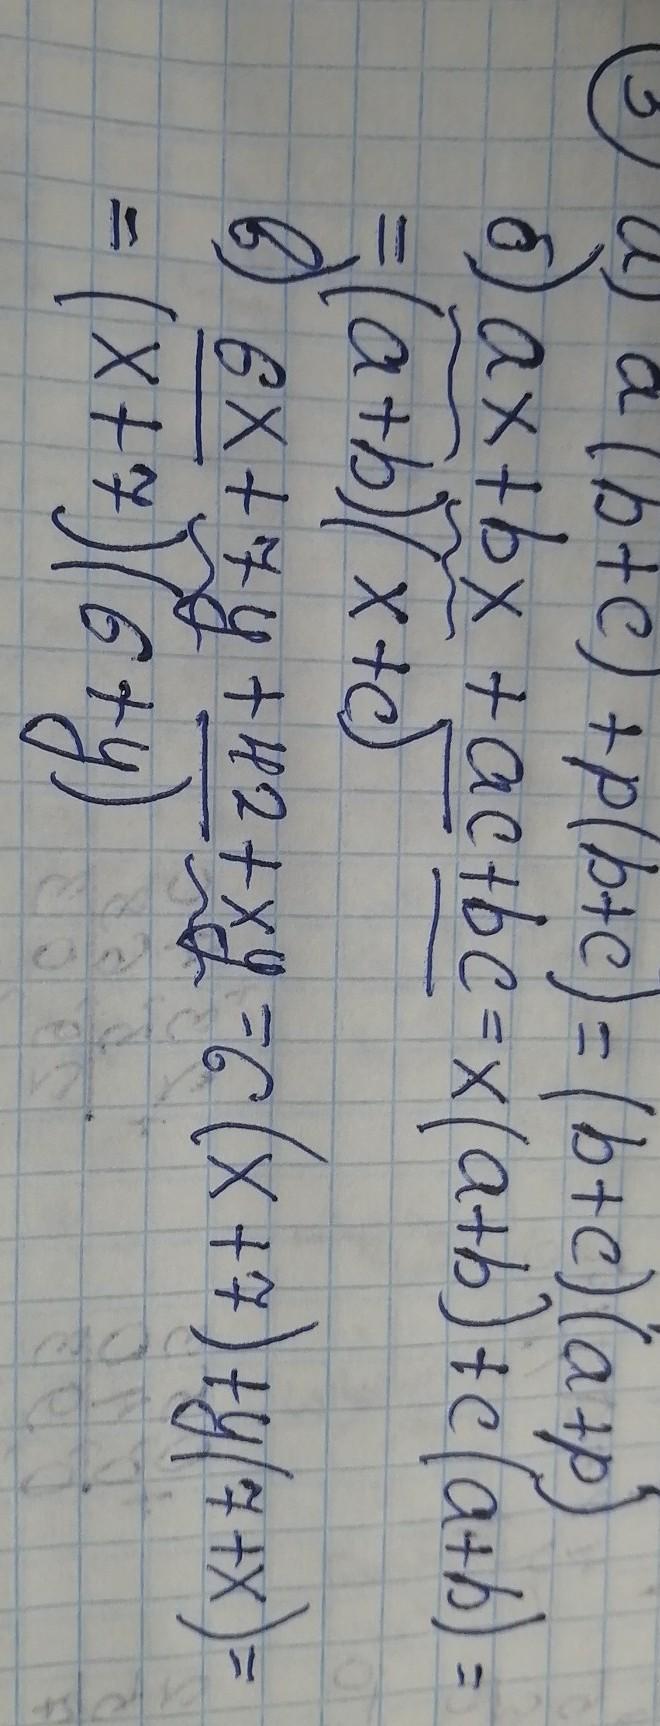 3) а) a(b+c)+p(b+c)=(b+c)(a+p)
б) ax+bx+ac+bc=x(a+b)+c(a+b)=
=(a+b)(x+c)
в) 6x+7y+42+xy=6(x+7)+y(7+x)=
=(x+7)(6+y)